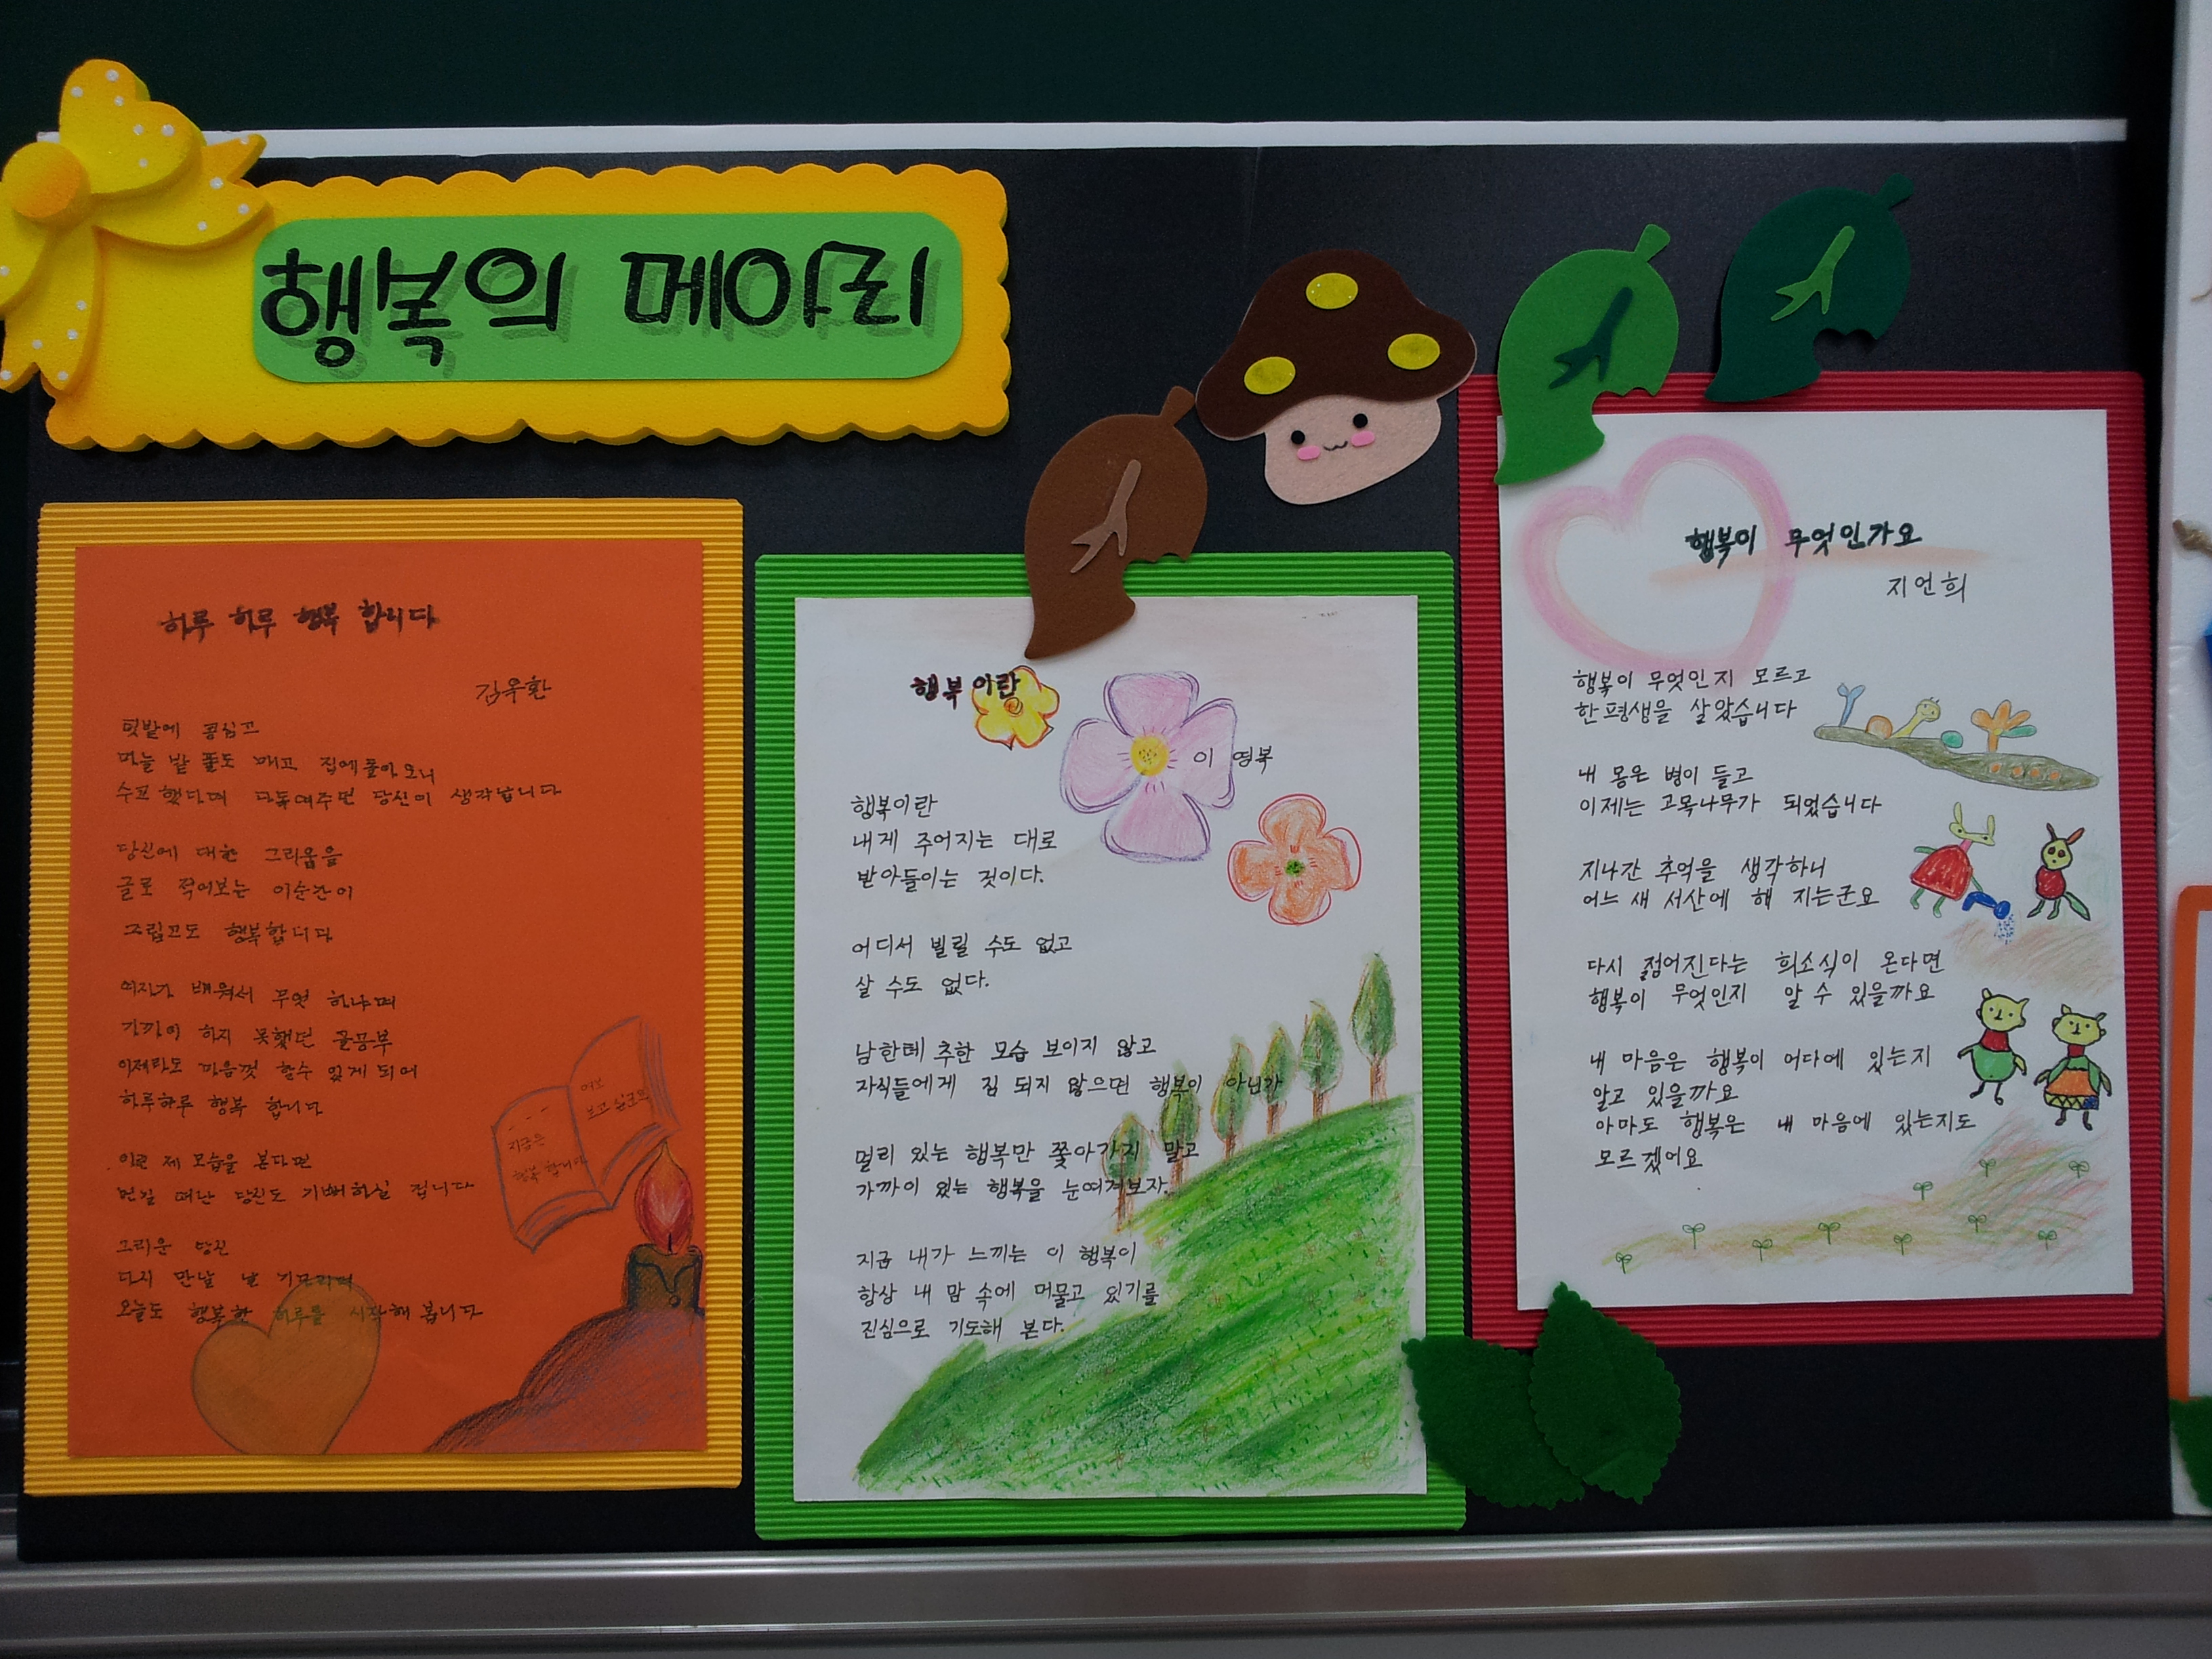 행복의 메아리
하루 하루 행복 합니다
텃밭에 콩심고
마늘 밭 풀도 매고 집에돌아오니
수고 했다며 다독여주던 당신이 생각납니다
당신에 대한 그리움을
글로 적어보는 이순간이
그립고도 행복합니다
여자가 배워서 무엇 하냐며
가까이 하지 못했던 글공부
이제라도 마음껏 할수 있게 되어
하루하루 행복 합니다
이런 제 모습을 본다면
먼길 떠난 당신도 기뻐하실 겁니다
그리운 당신
다시 만날 날 기다리며
오늘도 행복한 하루를 시작해 봅니다
지금은
행복 합니다
여보
보고 싶군요
행복이란
이 영복
행복이란
내게 주어지는 대로
받아들이는 것이다.
어디서 빌릴 수도 없고
살 수도 없다.
남한테 추한 모습 보이지 않고
자식들에게 짐 되지 않으면 행복이 아닌가
멀리 있는 행복만 쫓아가지 말고
가까이 있는 행복을 눈여겨보자.
지금 내가 느끼는 이 행복이
항상 내 맘 속에 머물고 있기를
진심으로 기도해 본다.
행복이 무엇인가요
지언희
행복이 무엇인지 모르고
한평생을 살았습니다
내 몸은 병이 들고
이제는 고목나무가 되었습니다
지나간 추억을 생각하니
어느 새 서산에 해 지는군요
다시 젊어진다는 희소식이 온다면
행복이 무엇인지 알 수 있을까요
내 마음은 행복이 어디에 있는지
알고 있을까요
아마도 행복은 내 마음에 있는지도
모르겠어요